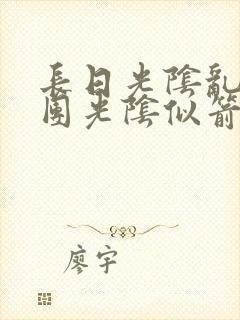 長日光陰亂
團光陰似箭
廖宇